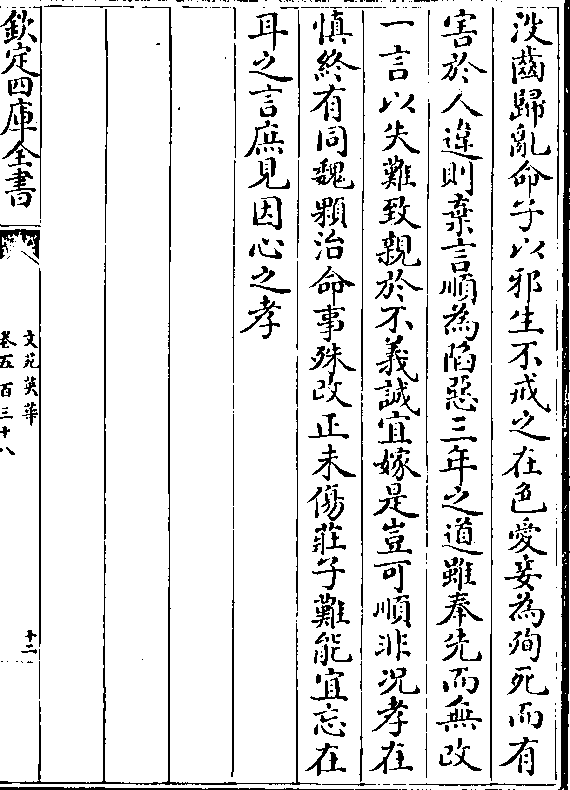 没齒歸亂命子以邪生不戒之在色愛妾為殉死而有
害於人違則棄言順為陷惡三年之道雖奉先而無改
一言以失難致親於不義誠宜嫁是豈可順非况孝在
慎終有同魏顆治命事殊改正未傷莊子難能宜忘在
耳之言庶見因心之孝
欽定四庫全書
文苑英華
卷五百三十八
十二